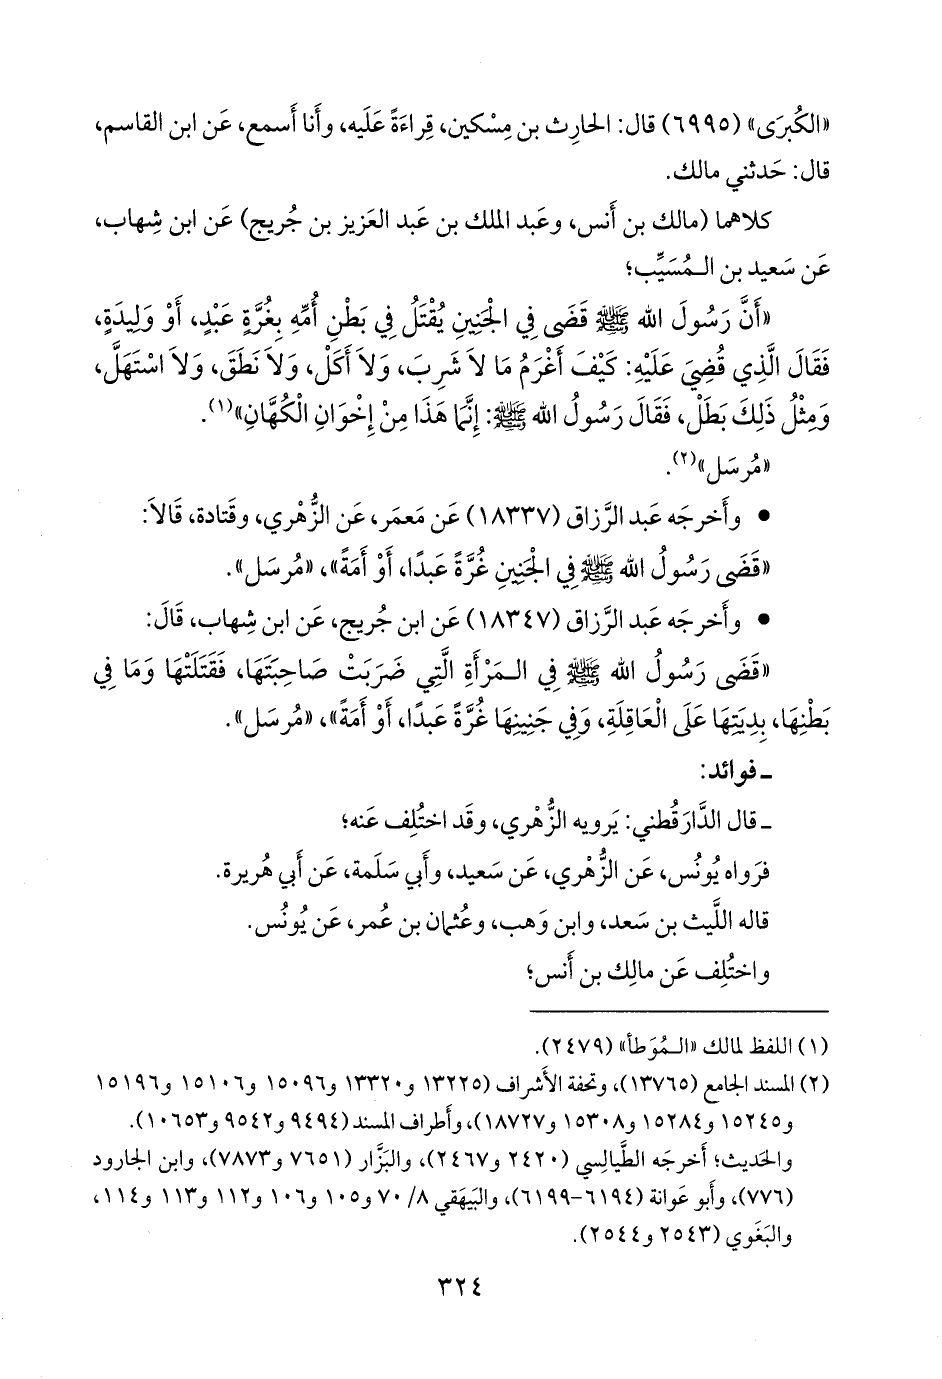 «الكُبرَى» (٦٩٩٥) قال: الحارِث بن مِسْكين، قِراءَةً عَلَيه، وأَنا أَسمع، عَن ابن القاسم،
قال: حَدثني مالك.
كلاهما (مالك بن أَنس، وعَبد الملك بن عَبد العَزيز بن جُريج) عَن ابن شِهاب،
عَن سَعيد بن الـمُسَيِّب؛
«أَنَّ رَسُولَ الله ﷺ قَضَى فِي الْجَنِينِ يُقْتَلُ فِي بَطْنِ أُمِّهِ بِغُرَّةٍ عَبْدٍ، أَوْ وَلِيدَةٍ،
فَقَالَ الَّذِي قُضِيَ عَلَيْهِ: كَيْفَ أَغْرَمُ مَا لاَ شَرِبَ، وَلاَ أَكَلْ، وَلاَ نَطَقَ، وَلاَ اسْتَهَلَّ،
وَمِثْلُ ذَلِكَ بَطَلْ، فَقَالَ رَسُولُ الله ﷺ: إِنَّمَا هَذَا مِنْ إِخْوَانِ الْكُهَّانِ»(١).
«مُرسَل»(٢).
• وأَخرجَه عَبد الرَّزاق (١٨٣٣٧) عَن مَعمَر، عَن الزُّهْري، وقَتادة، قَالاَ:
«قَضَى رَسُولُ الله ﷺ فِي الْجَنِينِ غُرَّةً عَبْدًا، أَوْ أَمَةً»، «مُرسَل».
• وأَخرجَه عَبد الرَّزاق (١٨٣٤٧) عَن ابن جُريج، عَن ابن شِهاب، قَالَ:
«قَضَى رَسُولُ الله ﷺ فِي الـمَرْأَةِ الَّتِي ضَرَبَتْ صَاحِبَتَهَا، فَقَتَلَتْهَا وَمَا فِي
بَطْنِهَا، بِدِيَتِهَا عَلَى الْعَاقِلَةِ، وَفِي جَنِينِهَا غُرَّةً عَبدًا، أَوْ أَمَةً»، «مُرسَل».
ـ فوائد:
ـ قال الدَّارَقُطني: يَرويه الزُّهْري، وقَد اختُلِف عَنه؛
فرَواه يُونُس، عَن الزُّهْري، عَن سَعيد، وأَبي سَلَمة، عَن أَبي هُريرة.
قاله اللَّيث بن سَعد، وابن وَهب، وعُثمان بن عُمر، عَن يُونُس.
واختُلِف عَن مالِك بن أَنس؛
(١) اللفظ لمالك «الـمُوَطأ» (٢٤٧٩).
(٢) المسند الجامع (١٣٧٦٥)، وتحفة الأشراف (١٣٢٢٥ و١٣٣٢٠ و١٥٠٩٦ و١٥١٠٦ و١٥١٩٦
و١٥٢٤٥ و١٥٢٨٤ و١٥٣٠٨ و١٨٧٢٧)، وأطراف المسند (٩٤٩٤ و٩٥٤٢ و١٠٦٥٣).
والحَديث؛ أخرجَه الطَّيالِسي (٢٤٢٠ و٢٤٦٧)، والبَزَّار (٧٦٥١ و٧٨٧٣)، وابن الجارود
(٧٧٦)، وأبو عَوانة (٦١٩٤–٦١٩٩)، والبَيهَقي ٨/ ٧٠ و١٠٥ و١٠٦ و١١٢ و١١٣ و١١٤،
والبَغَوي (٢٥٤٣ و٢٥٤٤).
٣٢٤